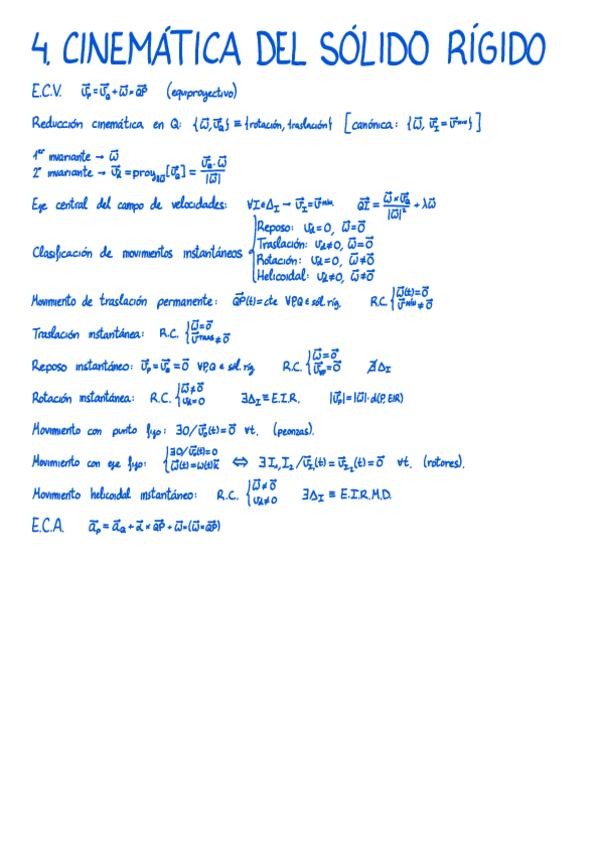 4. CINEMÁTICA DEL SÓLIDO RÍGIDO
E.C.V. v⃗_P = v⃗_Q + ω⃗ × QP⃗ (equiproyectivo)
Reducción cinemática en Q: {ω⃗, v⃗_Q} ≡ {rotación, traslación} [canónica: {ω⃗, v⃗_I = v⃗^mín}]
1er invariante → ω⃗
2º invariante → v⃗_d = proy_ΔQ [v⃗_Q] = (v⃗_Q · ω⃗) / |ω⃗|
Eje central del campo de velocidades: ∀I ∈ Δ_I → v⃗_I = v⃗^mín. QI⃗ = (ω⃗ × v⃗_Q) / |ω⃗|² + λω⃗
Clasificación de movimientos instantáneos
Reposo: v_d = 0, ω⃗ = 0⃗
Traslación: v_d ≠ 0, ω⃗ = 0⃗
Rotación: v_d = 0, ω⃗ ≠ 0⃗
Helicoidal: v_d ≠ 0, ω⃗ ≠ 0⃗
Movimiento de traslación permanente: QP⃗(t) = cte ∀P,Q ∈ sól. ríg. R.C. { ω⃗(t) = 0⃗ v⃗^mín ≠ 0⃗
Traslación instantánea: R.C. { ω⃗ = 0⃗ v⃗^TRAS ≠ 0⃗
Reposo instantáneo: v⃗_P = v⃗_Q = 0⃗ ∀P,Q ∈ sól. ríg. R.C. { ω⃗ = 0⃗ v⃗_P = 0⃗ ∄Δ_I
Rotación instantánea: R.C. { ω⃗ ≠ 0⃗ v_d = 0 ∃Δ_I ≡ E.I.R. |v⃗_P| = |ω⃗| · d(P, EIR)
Movimiento con punto fijo: ∃O / v⃗_O(t) = 0⃗ ∀t. (peonzas).
Movimiento con eje fijo: { ∃O / v⃗_O(t) = 0 ω⃗(t) = ω(t)k⃗ ⇔ ∃ I₁, I₂ / v⃗_I₁(t) = v⃗_I₂(t) = 0⃗ ∀t. (rotores).
Movimiento helicoidal instantáneo: R.C. { ω⃗ ≠ 0⃗ v_d ≠ 0 ∃Δ_I ≡ E.I.R.M.D.
E.C.A. a⃗_P = a⃗_Q + α⃗ × QP⃗ + ω⃗ × (ω⃗ × QP⃗)